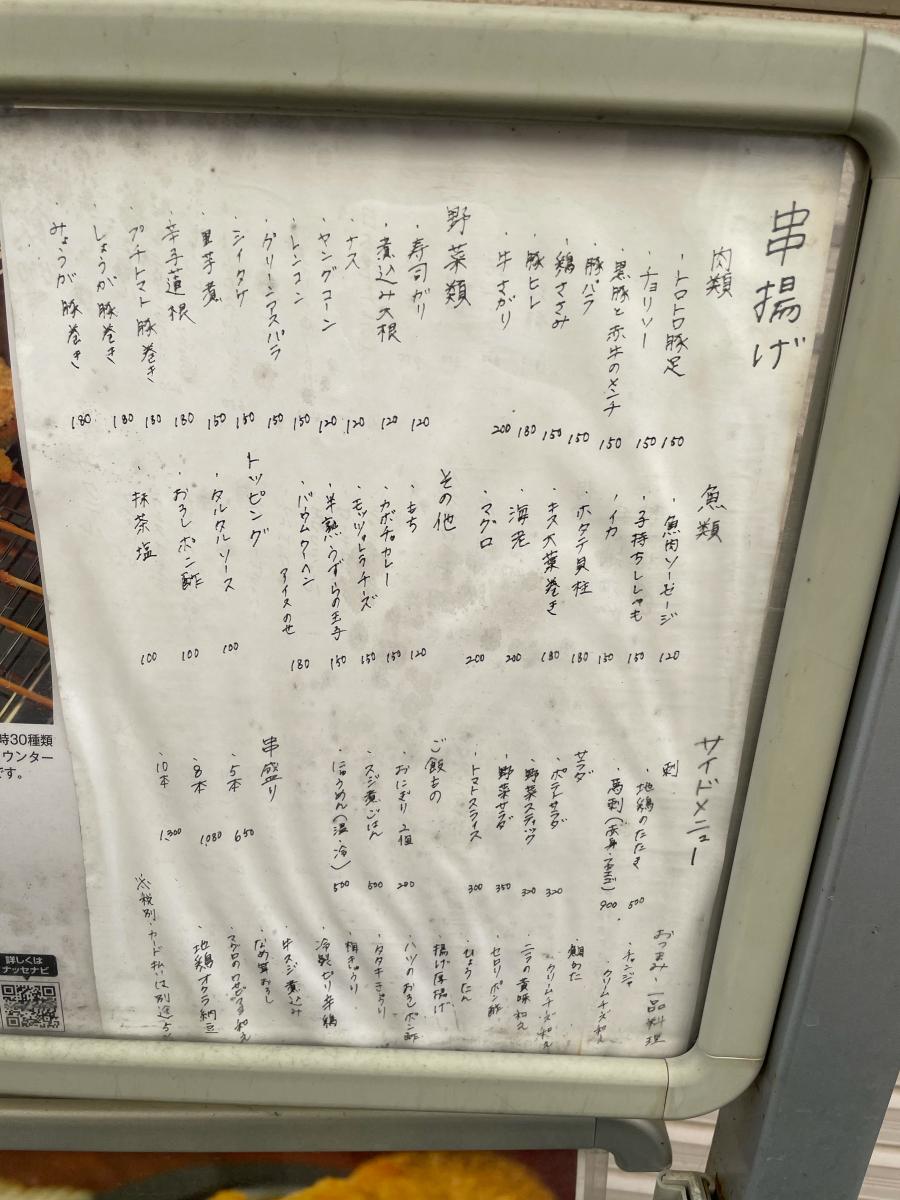 串揚げ
肉類
・トロトロ豚足 150
・チョリソー 150
・黒豚と赤牛のメンチ 150
・豚バラ 150
・鶏ささみ 150
・豚ヒレ 180
・牛さがり 200
野菜類
・寿司ガリ 120
・煮込み大根 120
・ナス 120
・ヤングコーン 120
・レンコン 150
・グリーンアスパラ 150
・シイタケ 150
・里芋煮 150
・辛子蓮根 180
・プチトマト豚巻き 180
・しょうが豚巻き 180
・みょうが豚巻き 180
魚類
・魚肉ソーセージ 120
・子持ちししゃも 150
・イカ 150
・ホタテ貝柱 180
・キス大葉巻き 180
・海老 200
・マグロ 200
その他
・もち 120
・カボチャカレー 150
・モッツァレラチーズ 150
・半熟うずらの玉子 150
・バウムクーヘン アイスのせ 180
トッピング
・タルタルソース 100
・おろしポン酢 100
・抹茶塩 100
サイドメニュー
刺
・地鶏のたたき 500
・馬刺(赤身 900
サラダ
・ポテトサラダ 320
・野菜スティック 320
・野菜サラダ 350
・トマトスライス 300
ご飯もの
・おにぎり 2個 200
・スジ煮ごはん 500
・にゅうめん(温・冷) 500
串盛り
・5本 650
・8本 1,080
・10本 1,300
おつまみ・一品料理
・チャンジャ
・クリームチーズ和え
・クリームチーズ和え
・ニラの黄味和え
・セロリポン酢
・ひょうたん
・揚げ厚揚げ
・ハツのおろしポン酢
・タタキきゅうり
・梅きゅうり
・冷製ピリ辛鶏
・牛スジ煮込み
・なめ茸おろし
・マグロのワサビ和え
・地鶏オクラ納豆
※税別・カード払いは別途5
時30種類
ウンター
です。
詳しくは
ナッセナビ